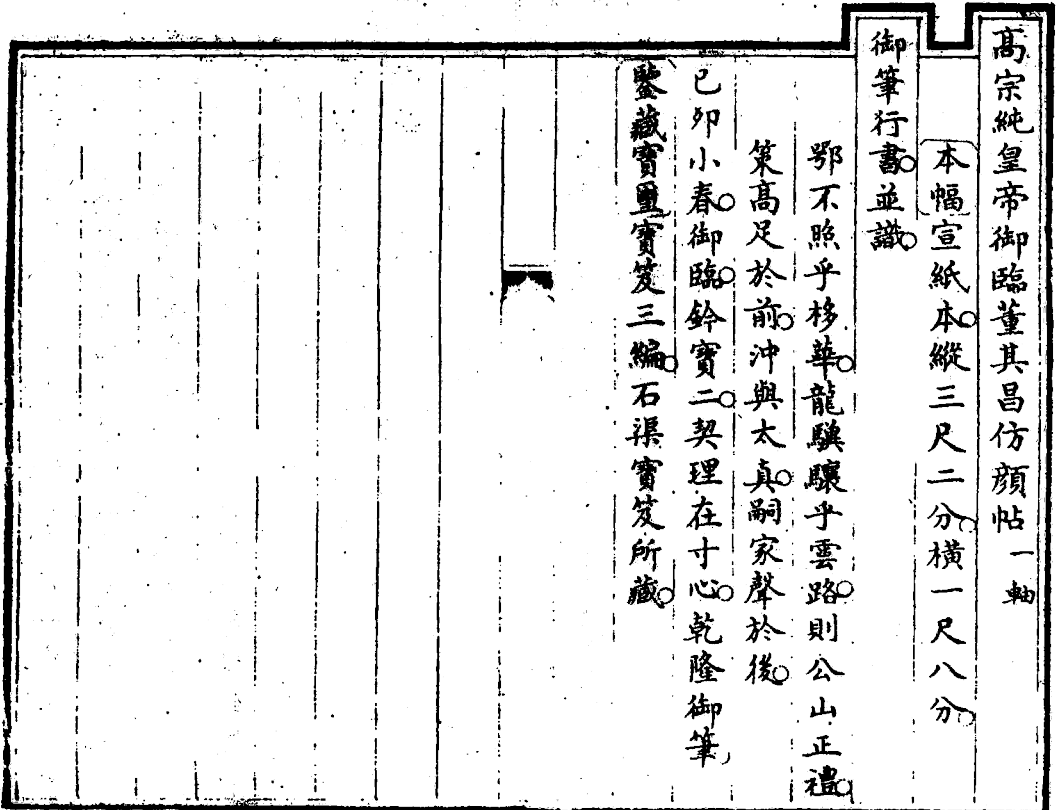 高宗純皇帝御臨董其昌仿顔帖一軸
本幅宣紙本縱三尺二分橫一尺八分
御筆行書並識
鄂不照乎栘華龍驥驤乎雲路則公山正禮
策高足於前沖與太真嗣家聲於後
己卯小春御臨鈐寶二契理在寸心乾隆御筆
鑒藏寶璽寶笈三編石渠寶笈所藏